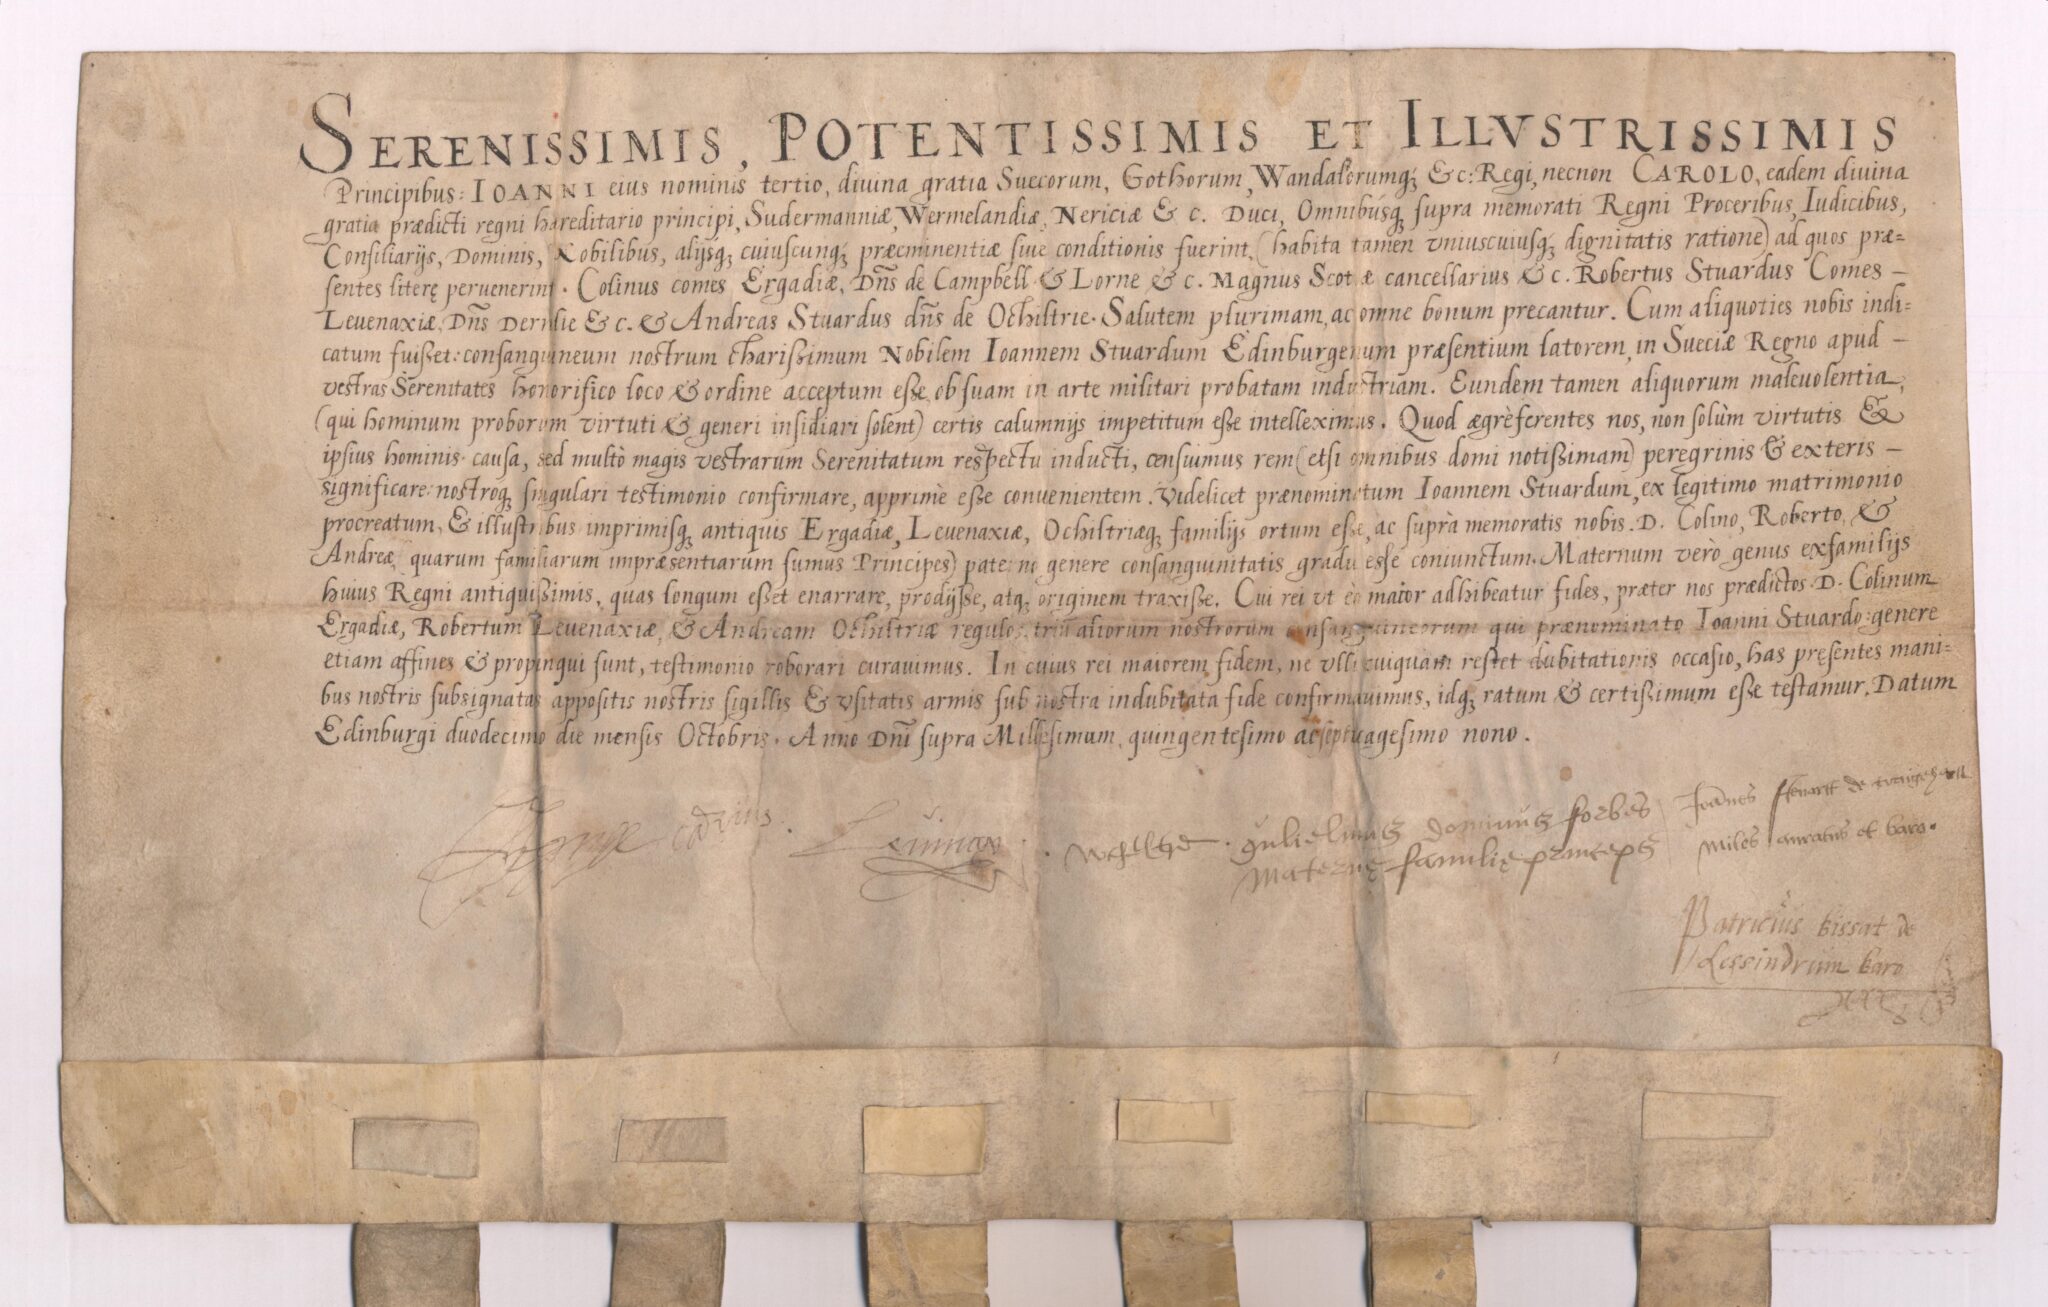 SERENISSIMIS, POTENTISSIMIS ET ILLVSTRISSIMIS
Principibus: IOANNI eius nominis tertio, diuina gratia Suecorum, Gothorum, Wandalorumq; &c: Regi, necnon CAROLO, eadem diuina
gratia prædicti regni hæreditario principi, Sudermanniæ, Wermelandiæ, Nericiæ & c. Duci, Omnibúsq; supra memorati Regni Proceribus, Iudicibus,
Consiliarijs, Dominis, Nobilibus, alijsq; cuiuscunq; præeminentiæ siue conditionis fuerint, (habita tamen vniuscuiusq; dignitatis ratione) ad quos præ=
sentes literę peruenerint. Colinus comes Ergadiæ, Dn̄s de Campbell & Lorne & c. Magnus Scotiæ cancellarius & c. Robertus Stuardus Comes –
Leuenaxiæ, Dn̄s Dernlie & c. & Andreas Stuardus dn̄s de Ochiltrie. Salutem plurimam, ac omne bonum precantur. Cum aliquoties nobis indi=
catum fuißet: consanguineum nostrum charißimum Nobilem Ioannem Stuardum Edinburgenum præsentium latorem, in Sueciæ Regno apud –
vestras Serenitates honorifico loco & ordine acceptum eße, ob suam in arte militari probatam industriam. Eundem tamen aliquorum maleuolentia,
(qui hominum proborum virtuti & generi insidiari solent) certis calumnijs impetitum eße intelleximus. Quod ægrè ferentes nos, non solùm virtutis &
ipsius hominis causa, sed multò magis vestrarum Serenitatum respectu inducti, censuimus rem (etsi omnibus domi notißimam) peregrinis & exteris –
significare: nostroq; singulari testimonio confirmare, apprimè eße conuenientem. Videlicet prænominatum Ioannem Stuardum, ex legitimo matrimonio
procreatum, & illustribus imprimisq; antiquis Ergadiæ, Leuenaxiæ, Ochiltriæq; familijs ortum eße, ac suprà memoratis nobis. D. Colino, Roberto, &
Andreæ, quarum familiarum impræsentiarum sumus Principes) paterno genere consanguinitatis gradu esse coniunctum. Maternum verò genus ex familijs
huius Regni antiquißimis, quas longum eßet enarrare, prodijsse, atq; originem traxiße. Cui rei vt eò maior adhibeatur fides, præter nos prædictos D. Colinum
Ergadiæ, Robertum Leuenaxiæ, & Andream Ochiltriæ regulos, trium aliorum nostrorum consanguineorum qui prænominato Ioanni Stuardo: genere
etiam affines & propinqui sunt, testimonio roborari curauimus. In cuius rei maiorem fidem, ne vlli cuiquam restet dubitationis occasio, has pręsentes mani=
bus nostris subsignatas appositis nostris sigillis & vsitatis armis sub nostra indubitata fide confirmauimus, idq; ratum & certißimum eße testamur. Datum
Edinburgi duodecimo die mensis Octobris. Anno Dn̄i supra Millesimum, quingentesimo ac septuagesimo nono.
Leuinax
Gulielmus dominus forbes
maternę familię princeps
Joānes steuartt de
miles auratus et baro.
Patricius bissat de
Lessindrum baro